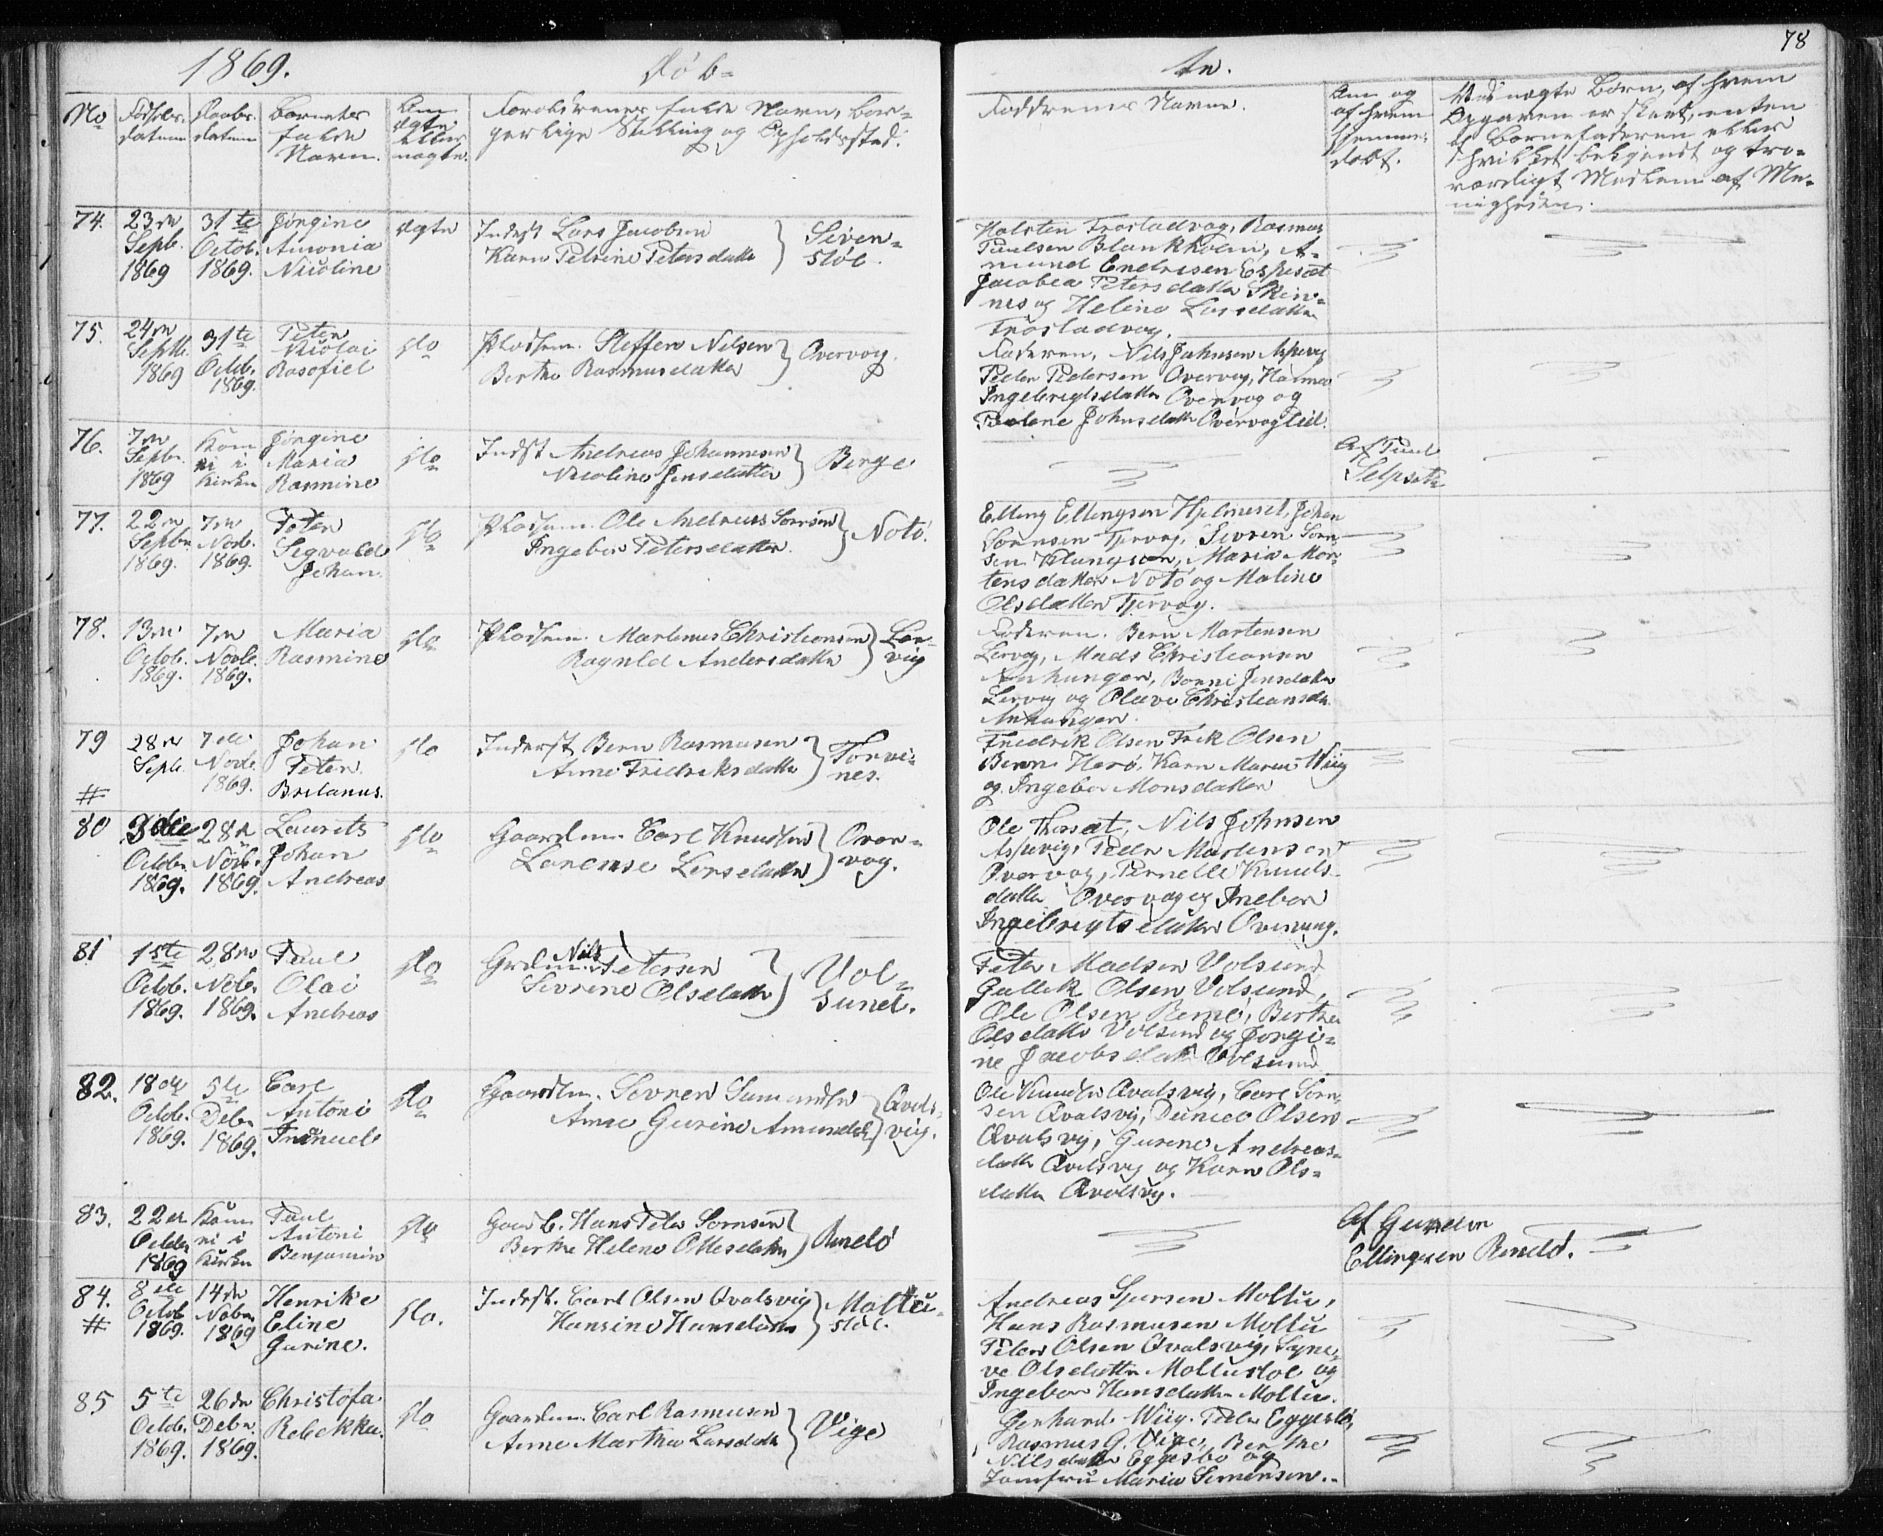 78
1869. Døb- te.
No Fødsels- datum Daabs- datum Barnets fulde Navn. Om ægte eller uægte. Forældrenes fulde Navn, bor-
gerlige Stilling og Opholdssted. Faddernes Navne. Om og af hvem hjemme- døbt.
Ved uægte Børn, af hvem
Opgaven er skeet, enten
af Barnefaderen eller
hvilket bekjendt og tro-
værdigt Medlem af Me-
nigheden.
74. 23de Septb. 1869 31te Octob. 1869. Jørgine Amonia Nicoline ægte
Inderst Lars Jacobsen
Karn Petrine Petersdatter
Siven-
støl.
Holsten Frostadvog, Rasmus
Paulsen Blankholm, A-
mund Endresen Espeset
Jacobea Petersdatter Skin-
nes og Heline Larsdatter
Frostadvog.
75. 24de Septb. 1869 31te Octob. 1869. Peter Nicolai Rasofiel do
Pladsm. Steffen Nilsen
Berthe Rasmusdatter
Overvog.
Faderen, Nils Johnsen Aspevig
Peder Pedersen Overvog, Hanna
Ingebrigtsdatter Overvog og
Paulene Johnsdatter Overvoglid.
76. 7de Septbr. 1869 Kom ei i Kirken Jørgine Maria Rasmine do
Indst Andreas Johannesen
Nicoline Jensdatter
Berge
Af Paul
Selpsetr
77. 22de Septbr. 1869. 7de Novb. 1869. Peter Sigvald Johan do
Pladsm. Ole Andreas Sørnsen
Ingebor Petersdatter.
Notø.
Elling Ellingsen Hjelmeset, Johan
Sørensen Tjervog, Sevren Sørn-
sen Klungsøir, Maria Mor-
tensdatter Notø og Maline
Olsdatter Tjervog.
78. 13de Octob. 1869. 7de Novb. 1869. Maria Rasmine do
Pladsm. Martinus Christiansen
Ragnild Andersdatter
Ler-
vig
Faderen. Bern Martensen
Lervog, Mads Christiansen
Berni Jensdatter
Lervog og Olave Christiansdr.
79 28de Septb. # 7de Novb. 1869. Johan Peter Britanus. do
Inderst Bern Rasmusen
Anne Fridriksdatter
Torvi-
nes.
Fredrik Olsen Frik Olsen
Bern Herø, Karn Marie Wiig
og Ingebor Monsdatter
80 3die Octobr. 1869. 28de Novb. 1869. Laurits Johan Andreas do
Gaardm. Carl Knudsen
Lorense Larsdatter
Over-
vog.
Ole Thoset, Nils Johnsen
Aspevig, Peder Martinsen
Overvog, Pernelle Knuds-
datter Overvog og Inebor
Ingebrigtsdatter Overvog.
81 15te Octob. 1869. 28de Nobr. 1869. Paul Olai Andreas do
Grdm. Nils Petersen
Sivrine Olsdatter
Vol-
sund.
Peter Madsen Volsund
Gullik Olsen Volsund,
Ole Olsen Reme, Berthe
Olsdatter Volsund og Jørgi-
ne Jacobsdatr Volsund
82. 18de Octob. 1869. 5te Debr. 1869. Carl Antoni Imanuel do
Gaardm. Sevren Samundsen
Anne Gurine Amundsdtr
Qvals-
vig.
Ole Knudsn Qvalsvig, Carl Sørn-
sen Qvalsvig, Daniel Olsen
Qvalsvig, Gurine Andreas-
datter Qvalsvig og Karn Ols-
datter Qvalsvig.
83. 22de Octobr 1869 Kom ei i Kirken Paul Antoni Benjamin do
Gaar b. Hans Peter Sørnsen
Berthe Helene Ottesdatter
Runelø
Af
Ellingsen Runelø.
84. # 8de Octob 1869. 14de Nobr. 1869 Henrike Eline Gurine. do.
Inderst. Carl Olsen Qvalsvig
Hansine Hansdatter
Moltu-
støl.
Andreas Sjursen Moltu,
Hans Rasmusen Moltu
Peder Olsen Qvalsvig, Syne-
ve Olsdatter Moltustøl og
Ingebor Hansdatter Moltu.
85 5te Octob. 1869. 26de Debr. 1869. Christofa Rebekka. do
Gaardm. Carl Rasmusen
Anne Marthe Larsdatter
Vige
Gerhard Wiig. Peder Eggesbø,
Rasmus G. Vige, Berthe
Nilsdatter Eggesbø og
Jomfru Maria Simensen.